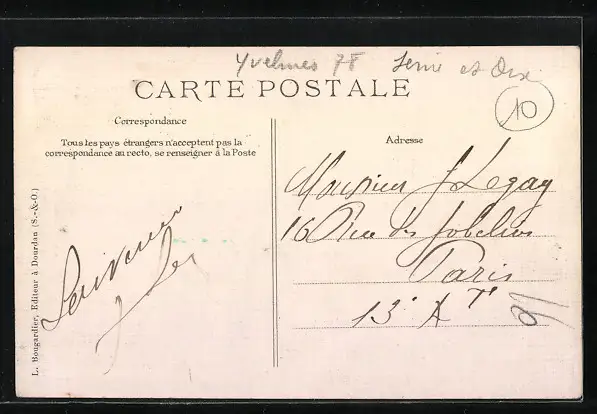 Yvelines 78 Seine et Oise
CARTE POSTALE
10
Correspondance
Tous les pays étrangers n'acceptent pas la
correspondance au recto, se renseigner à la Poste
Adresse
Monsieur J Legay
16 Rue des Gobelins
Paris
13e Art
91
Souvenir
L. Bougardier, Editeur à Dourdan (S.-&-O.)